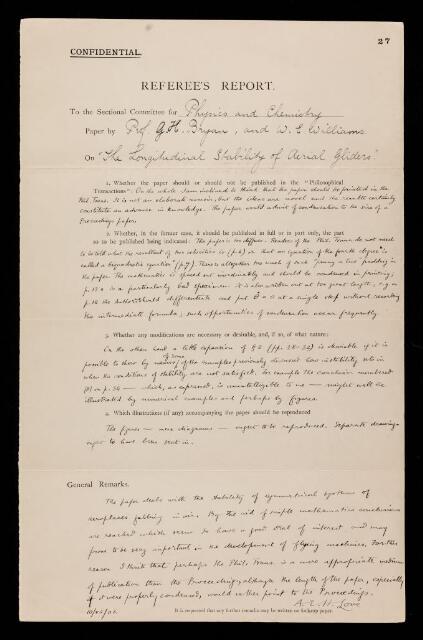 27
CONFIDENTIAL.
REFEREE'S REPORT.
To the Sectional Committee for Physics and Chemistry
Paper by Prof. G. H. Bryan, and W. E. Williams
On "The Longitudinal Stability of Aerial Gliders"
1. Whether the paper should or should not be published in the "Philosophical
Transactions": On the whole I am inclined to think that the paper should be printed in the
Phil. Trans. It is not an elaborate memoir, but the ideas are novel and the results certainly
constitute an advance in knowledge. The paper would admit of condensation to the size of a
Proceedings paper.
2. Whether, in the former case, it should be published in full or in part only, the part
so to be published being indicated: The paper is too diffuse. Readers of the Phil. Trans. do not need
to be told what the resultant of two velocities is (p. 6) or that an equation of the fourth degree is
called a biquadratic equation" (p. 9). There is altogether too much of such padding in
the paper. The mathematics is spread out inordinately and should be condensed in printing;
p. 13 is a particularly bad specimen. It is also written out at too great length, e.g. on
p. 16 the authors should differentiate and put = 0 at a single step without recording
the intermediate formula; such opportunities of condensation occur frequently.
3. Whether any modifications are necessary or desirable, and, if so, of what nature:
On the other hand a little expansion of § (pp. ) is desirable if it is
possible to show by means of some of the examples previously discussed how instability sets in
when the conditions of stability are not satisfied. For example the conclusion numbered
on p. 34 — which, as expressed, is unintelligible to me — might well be
illustrated by numerical examples and perhaps by figures.
4. Which illustrations (if any) accompanying the paper should be reproduced
The figures — mere diagrams — ought to be reproduced. Separate drawings
ought to have been sent in.
General Remarks.
The paper deals with the stability of symmetrical systems of
aeroplanes falling in air. By the aid of simple mathematics conclusions
are reached which seem to have a good deal of interest and may
prove to be very important in the development of flying machines. For this
reason I think that perhaps the Phil. Trans. is a more appropriate medium
of publication than the Proceedings; although the length of the paper, especially
if it were properly condensed, would rather point to the Proceedings.
A. E. H. Love
It is requested that any further remarks may be written on foolscap paper.